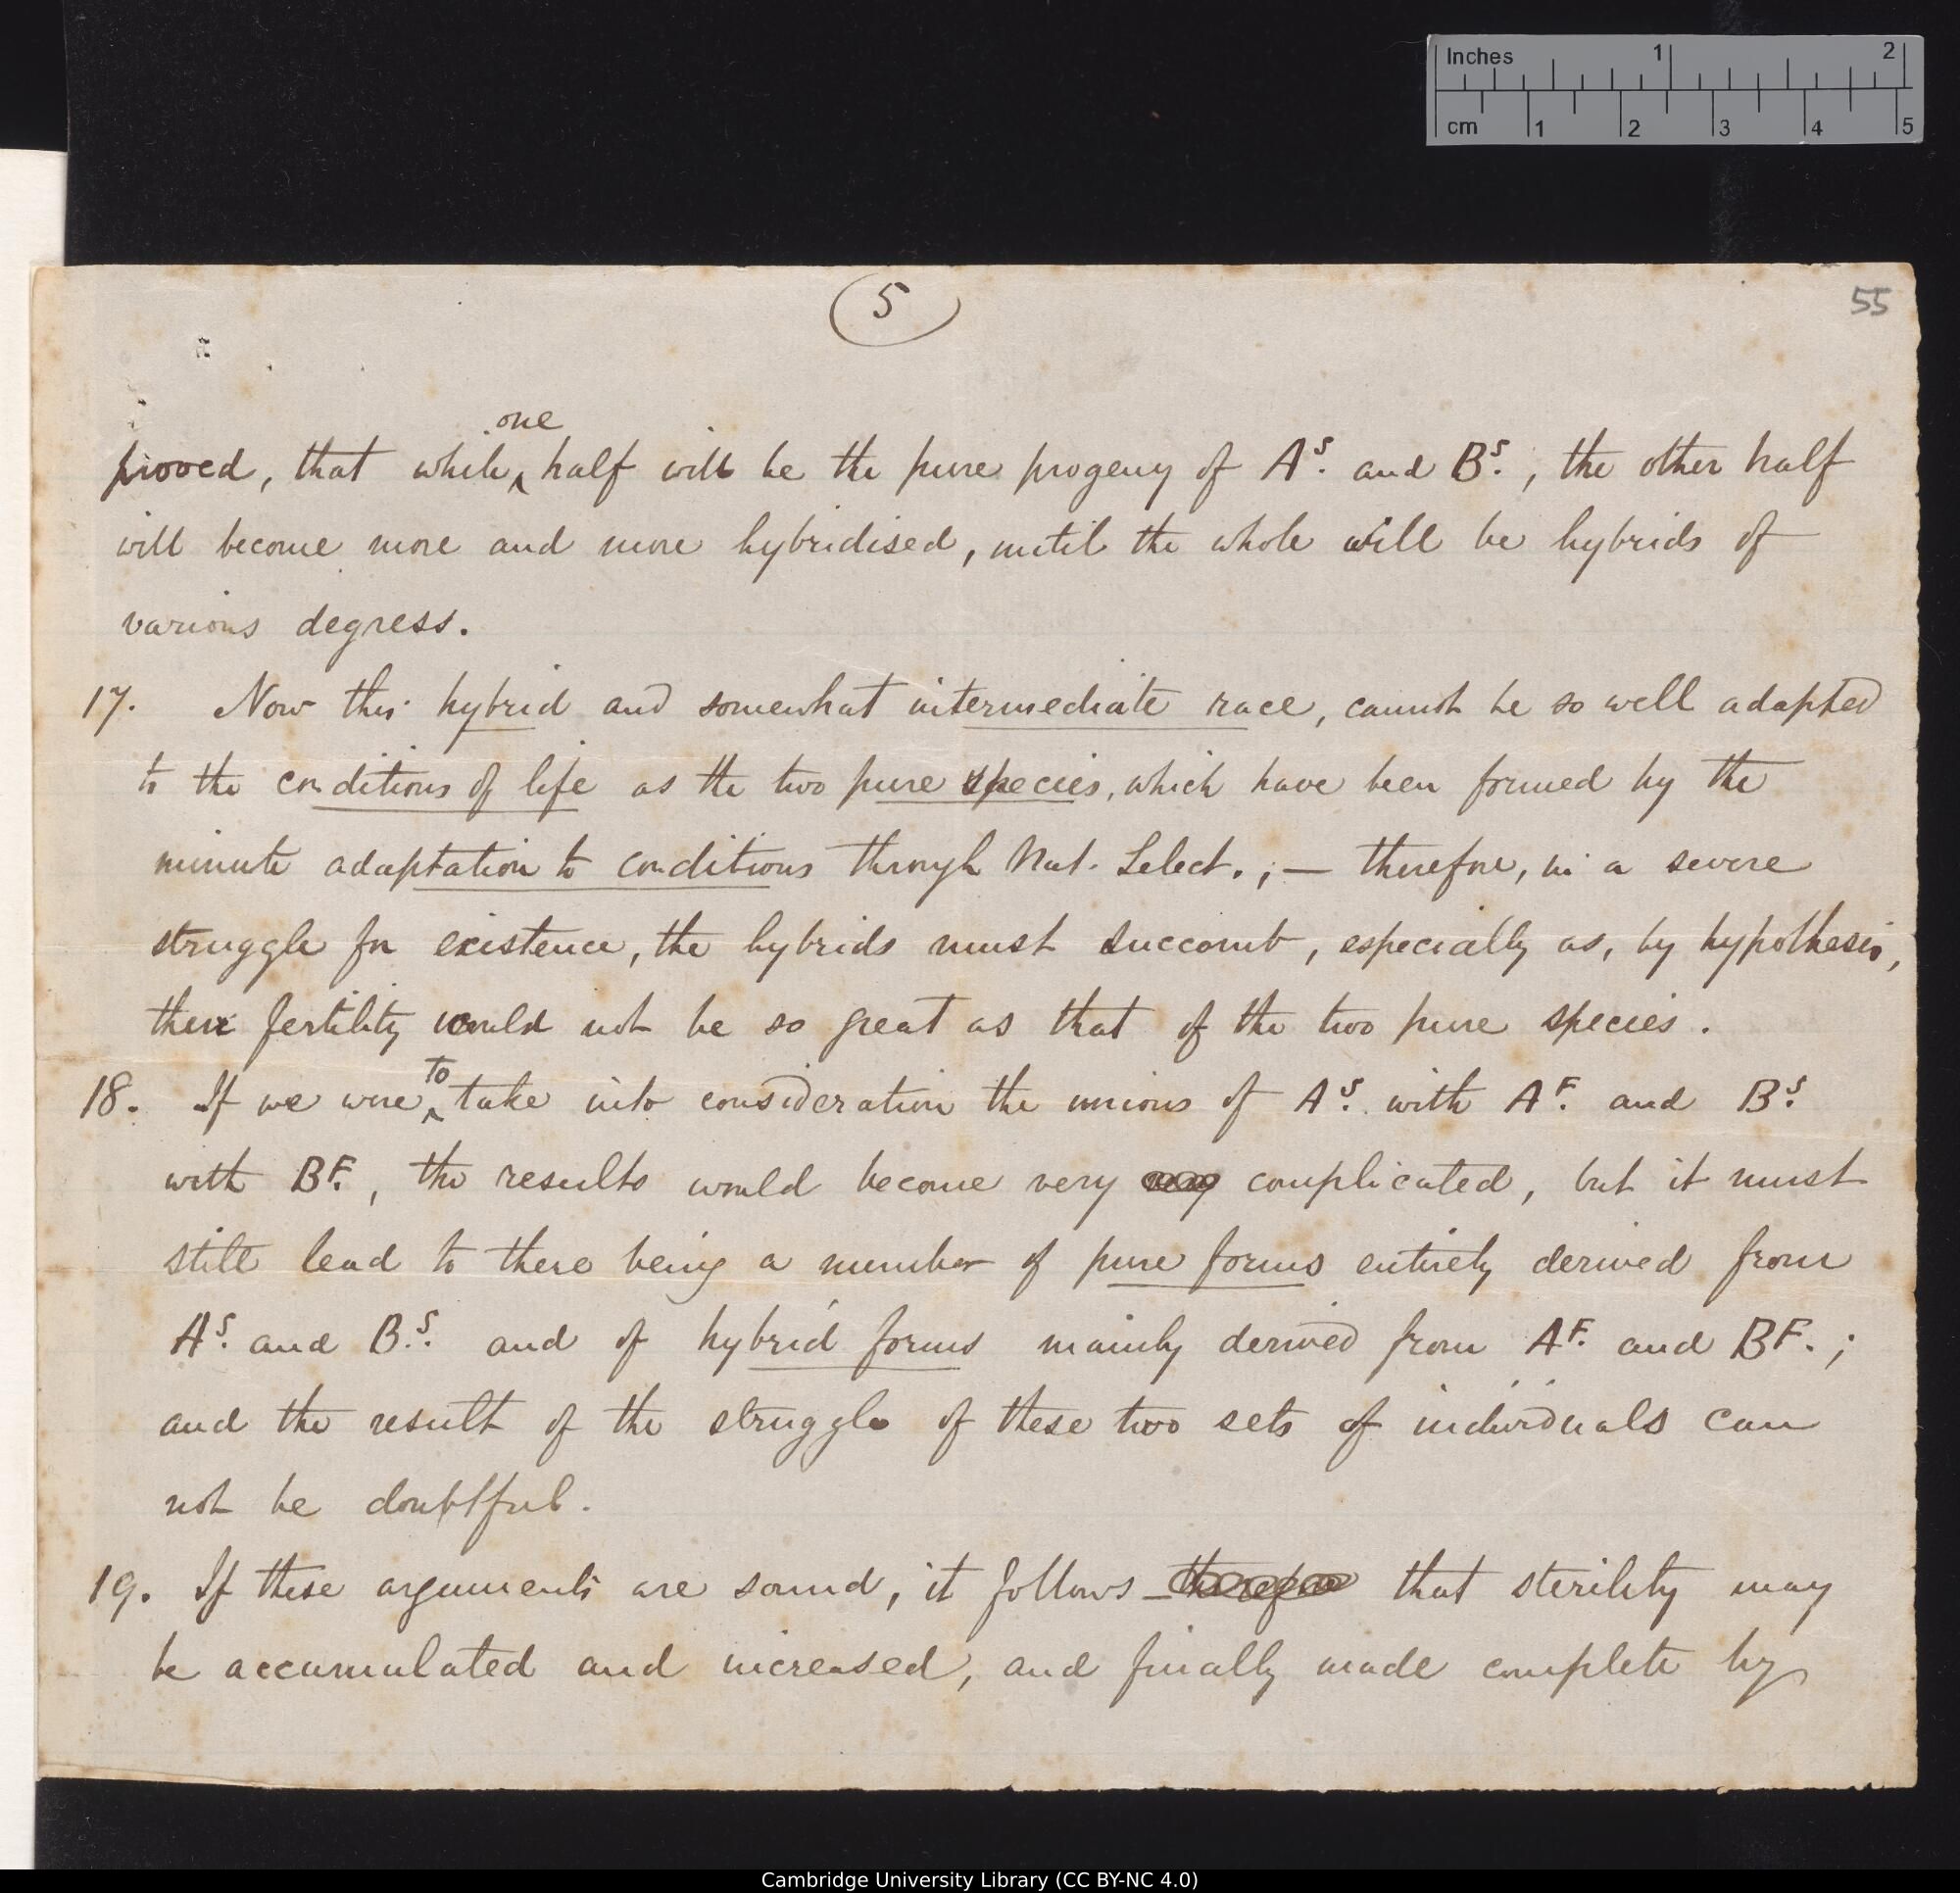 Inches 1 2
cm 1 2 3 4 5
5
55
one
proved, that while ‸ half will be the pure progeny of A^S. and B^S., the other half
will become more and more hybridised, until the whole will be hybrids of
various degress.
17. Now this hybrid and somewhat intermediate race, cannot be so well adapted
to the conditions of life as the two pure species, which have been formed by the
minute adaptation to conditions through Nat. Select.; — therefore, in a severe
struggle for existence, the hybrids must succomb, especially as, by hypothesis,
their fertility would not be so great as that of the two pure species.
to
18. If we were ‸ take into consideration the unions of A^S. with A^F. and B^S.
with B^F., the results would become very complicated, but it must
still lead to there being a number of pure forms entirely derived from
A^S. and B^S. and of hybrid forms mainly derived from A^F. and B^F.;
and the result of the struggle of these two sets of individuals can
not be doubtful.
19. If these arguments are sound, it follows therefore that sterility may
be accumulated and increased, and finally made complete by
Cambridge University Library (CC BY-NC 4.0)